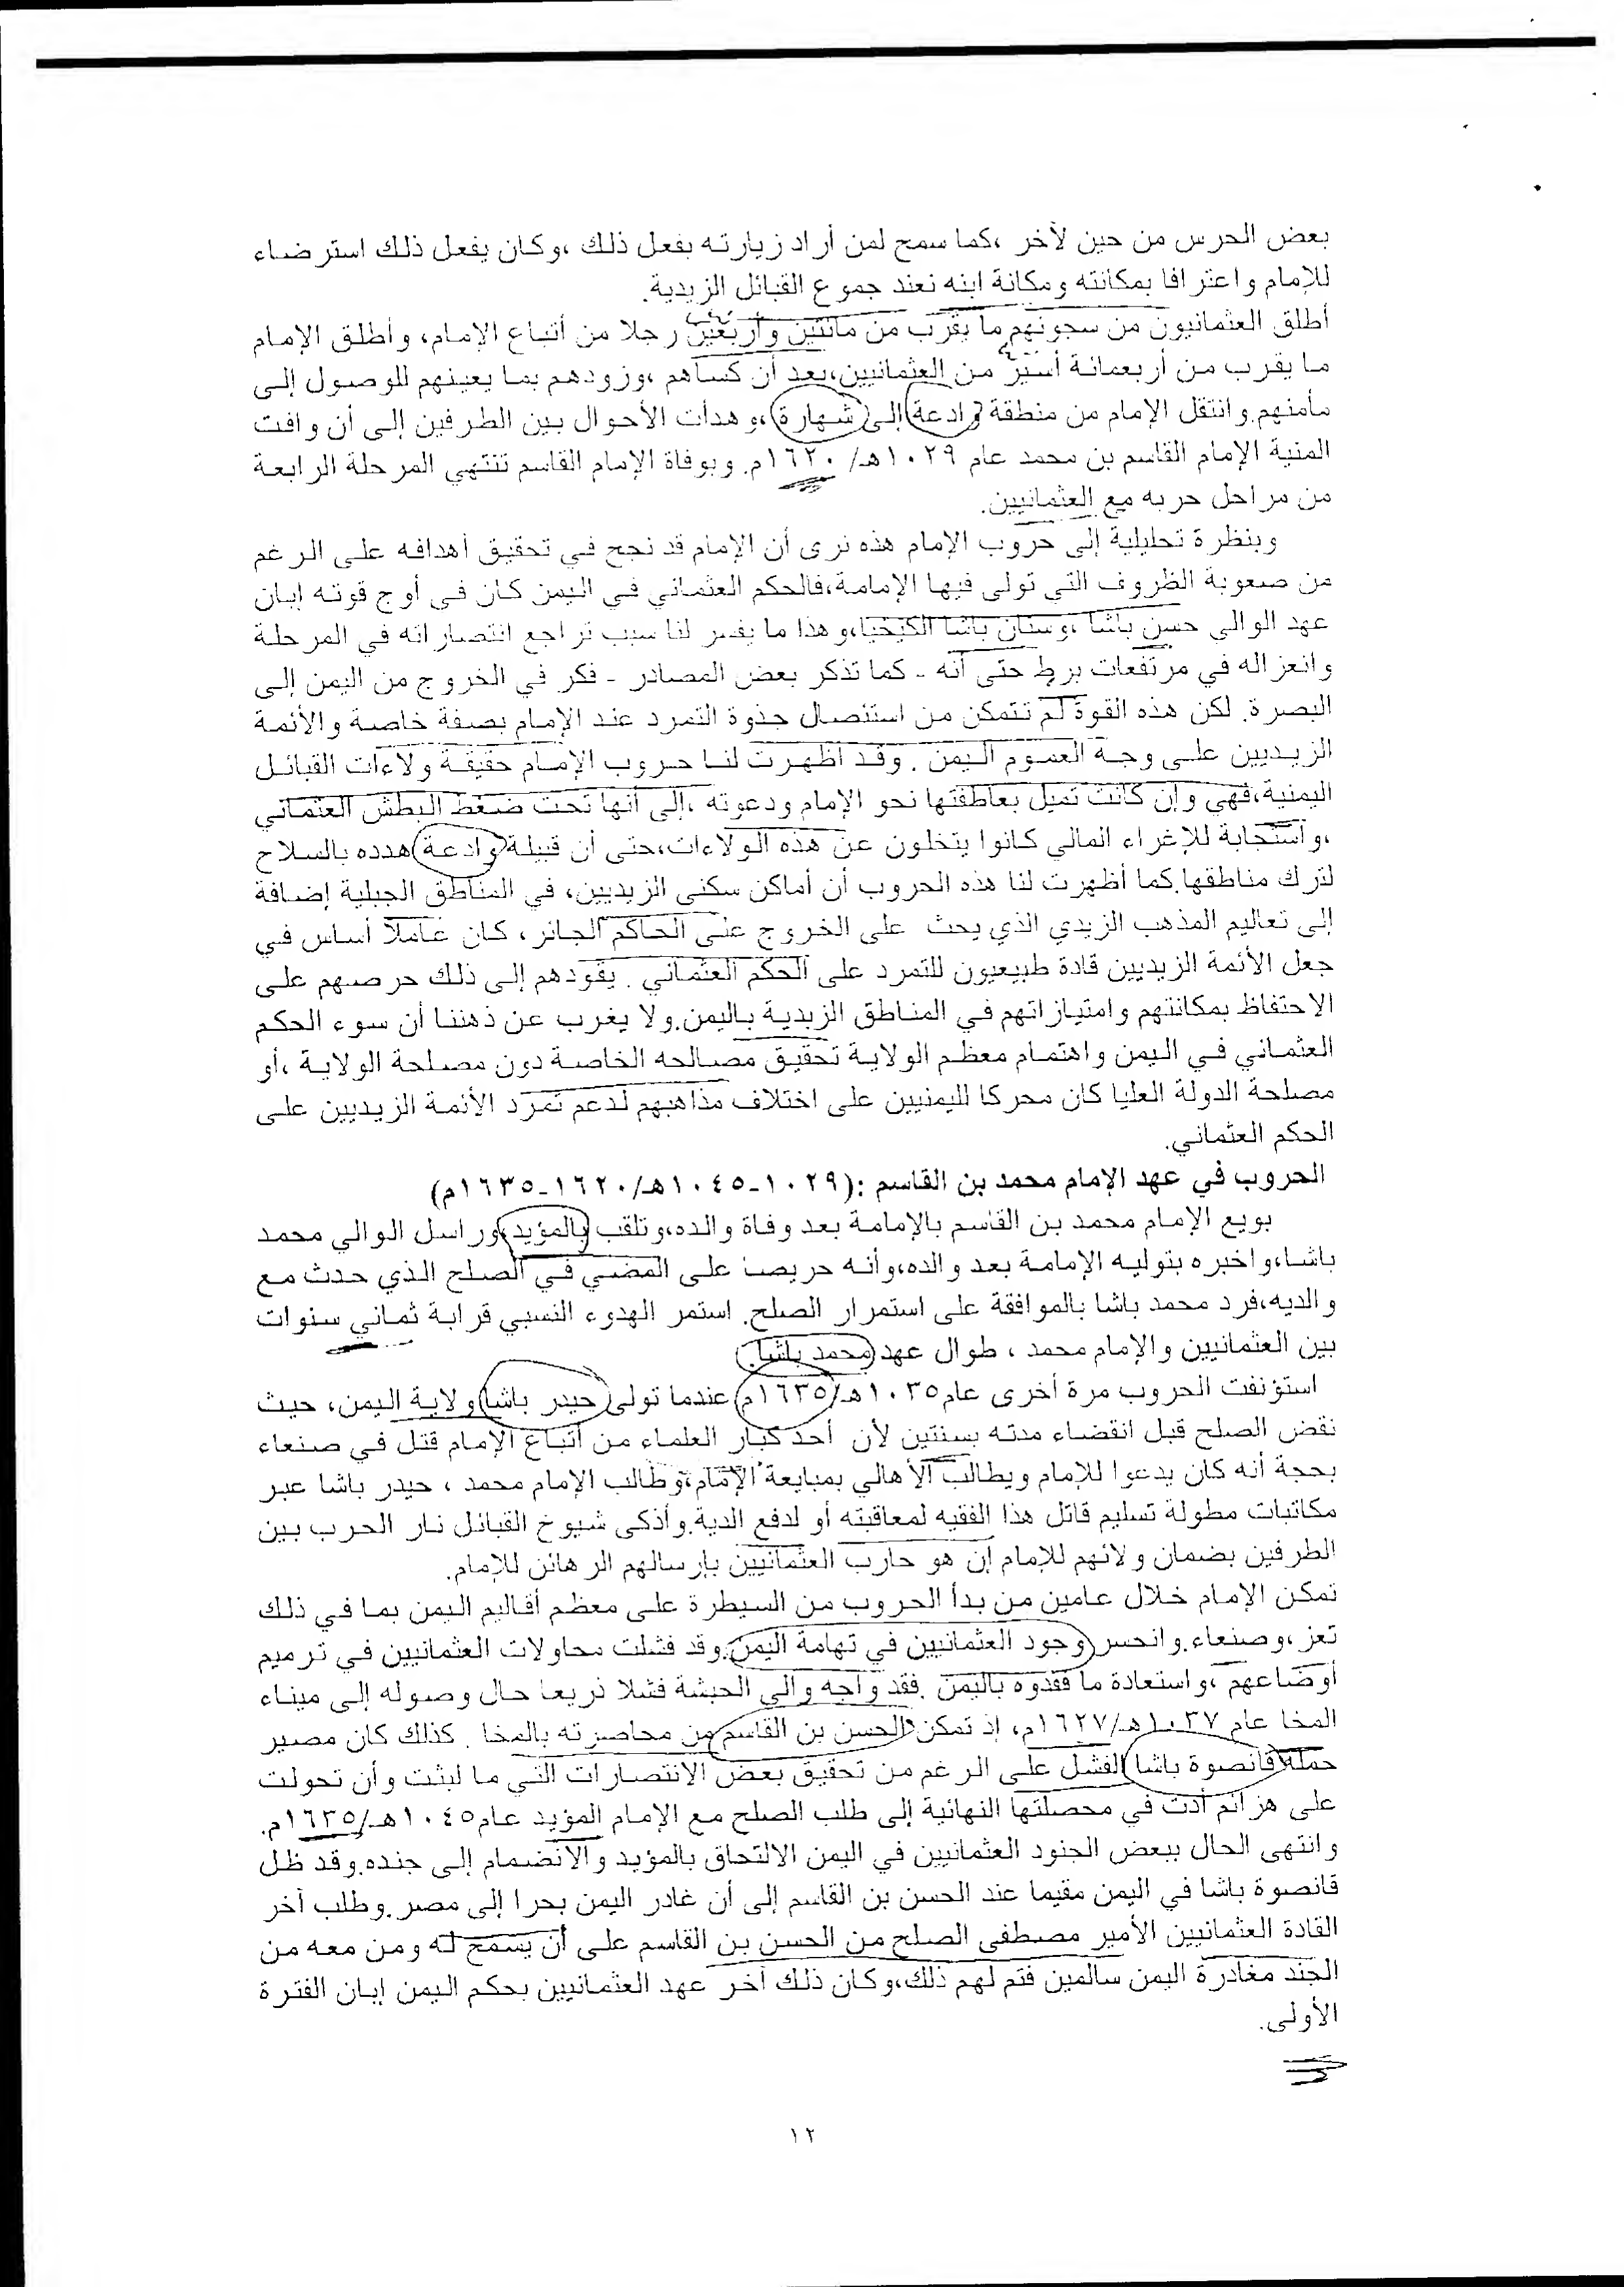 بعض الحرس من حين لآخر ،كما سمح لمن أراد زيارته بفعل ذلك ،وكان يفعل ذلك استرضاء
للإمام واعترافا بمكانته ومكانة ابنه نعند جموع القبائل الزيدية.
أطلق العثمانيون من سجونهم ما يقرب من مائتين وأربعين رجلا من أتباع الإمام، وأطلق الإمام
ما يقرب من أربعمائة أسير من العثمانيين،بعد أن كساهم ،وزودهم بما يعينهم للوصول إلى
مأمنهم.وانتقل الإمام من منطقة وادعة إلى شهارة ،وهدأت الأحوال بين الطرفين إلى أن وافت
المنية الإمام القاسم بن محمد عام ١٠٢٩هـ/ ١٦٢٠م. وبوفاة الإمام القاسم تنتهي المرحلة الرابعة
من مراحل حربه مع العثمانيين.
وبنظرة تحليلية إلى حروب الإمام هذه نرى أن الإمام قد نجح في تحقيق أهدافه على الرغم
من صعوبة الظروف التي تولى فيها الإمامة،فالحكم العثماني في اليمن كان في أوج قوته إبان
عهد الوالي حسن باشا ،وسنان باشا الكيخيا،وهذا ما يفسر لنا سبب تراجع انتصاراته في المرحلة
وانعزاله في مرتفعات برط حتى أنه - كما تذكر بعض المصادر - فكر في الخروج من اليمن إلى
البصرة. لكن هذه القوة لم تتمكن من استئصال جذوة التمرد عند الإمام بصفة خاصة والأئمة
الزيديين على وجه العموم اليمن . وقد أظهرت لنا حروب الإمام حقيقة ولاءات القبائل
اليمنية،فهي وإن كانت تميل بعاطفتها نحو الإمام ودعوته ،إلى أنها تحت ضغط البطش العثماني
،واستجابة للإغراء المالي كانوا يتخلون عن هذه الولاءات،حتى أن قبيلة وادعة هدده بالسلاح
لترك مناطقها.كما أظهرت لنا هذه الحروب أن أماكن سكنى الزيديين، في المناطق الجبلية إضافة
إلى تعاليم المذهب الزيدي الذي يحث على الخروج على الحاكم الجائر، كان عاملا أساس في
جعل الأئمة الزيديين قادة طبيعيون للتمرد على الحكم العثماني . يقودهم إلى ذلك حرصهم على
الاحتفاظ بمكانتهم وامتيازاتهم في المناطق الزيدية باليمن.ولا يغرب عن ذهننا أن سوء الحكم
العثماني في اليمن واهتمام معظم الولاية تحقيق مصالحه الخاصة دون مصلحة الولاية ،أو
مصلحة الدولة العليا كان محركا لليمنيين على اختلاف مذاهبهم لدعم تمرد الأئمة الزيديين على
الحكم العثماني.
الحروب في عهد الإمام محمد بن القاسم :(١٠٢٩-١٠٤٥هـ/١٦٢٠-١٦٣٥م)
بويع الإمام محمد بن القاسم بالإمامة بعد وفاة والده،وتلقب بالمؤيد،وراسل الوالي محمد
باشا،واخبره بتوليه الإمامة بعد والده،وأنه حريصا على المضي في الصلح الذي حدث مع
والديه،فرد محمد باشا بالموافقة على استمرار الصلح. استمر الهدوء النسبي قرابة ثماني سنوات
بين العثمانيين والإمام محمد ، طوال عهد محمد باشا.
استؤنفت الحروب مرة أخرى عام١٠٣٥هـ/١٦٣٥م عندما تولى حيدر باشا ولاية اليمن، حيث
نقض الصلح قبل انقضاء مدته بسنتين لأن أحد كبار العلماء من أتباع الإمام قتل في صنعاء
بحجة أنه كان يدعوا للإمام ويطالب الأهالي بمبايعة الإمام،وطالب الإمام محمد ، حيدر باشا عبر
مكاتبات مطولة تسليم قاتل هذا الفقيه لمعاقبته أو لدفع الدية.وأذكى شيوخ القبائل نار الحرب بين
الطرفين بضمان ولائهم للإمام إن هو حارب العثمانيين بإرسالهم الرهائن للإمام.
تمكن الإمام خلال عامين من بدأ الحروب من السيطرة على معظم أقاليم اليمن بما في ذلك
تعز ،وصنعاء.وانحسر وجود العثمانيين في تهامة اليمن.وقد فشلت محاولات العثمانيين في ترميم
أوضاعهم ،واستعادة ما فقدوه باليمن .فقد واجه والي الحبشة فشلا ذريعا حال وصوله إلى ميناء
المخا عام ١٠٣٧هـ/١٦٢٧م، إذ تمكن الحسن بن القاسم من محاصرته بالمخا . كذلك كان مصير
حملة قانصوة باشا الفشل على الرغم من تحقيق بعض الانتصارات التي ما لبثت وأن تحولت
على هزائم أدت في محصلتها النهائية إلى طلب الصلح مع الإمام المؤيد عام١٠٤٥هـ/١٦٣٥م.
وانتهى الحال ببعض الجنود العثمانيين في اليمن الالتحاق بالمؤيد والانضمام إلى جنده.وقد ظل
قانصوة باشا في اليمن مقيما عند الحسن بن القاسم إلى أن غادر اليمن بحرا إلى مصر.وطلب آخر
القادة العثمانيين الأمير مصطفى الصلح من الحسن بن القاسم على أن يسمح له ومن معه من
الجند مغادرة اليمن سالمين فتم لهم ذلك،وكان ذلك آخر عهد العثمانيين بحكم اليمن إبان الفترة
الأولى.
١٢